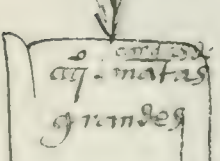 aq̃. matas
grandes